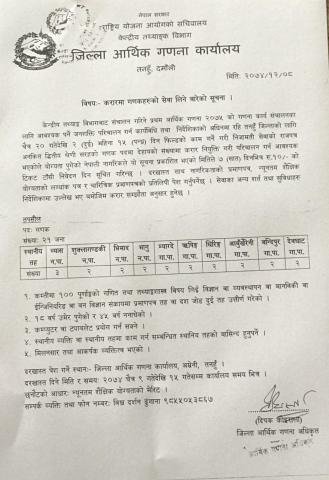 नेपाल सरकार
राष्ट्रिय योजना आयोगको सचिवालय
केन्द्रीय तथ्याङ्क विभाग
जिल्ला आर्थिक गणना कार्यालय
तनहुँ, दमौली
मिति: २०७४/१२/०८
विषय:- करारमा गणकहरुको सेवा लिने बारेको सूचना ।
केन्द्रीय तथ्याङ्क विभागबाट संचालन गरिने प्रथम आर्थिक गणना २०७५ को गणना कार्य संचालनका
लागि आवश्यक पर्ने जनशक्ति परिचालन गर्न कार्यविधि तथा निर्देशिकाको अधिनमा रहि तनहुँ जिल्लाको लागि
चैत्र २० गतेदेखि २ (दुई) महिना १५ (पन्ध्र) दिन फिल्डको काम गर्ने गरी निजामती सेवाको राजपत्र
अनंकित द्वितीय श्रेणी सरहको गणक पदमा देहायको संख्यामा करार नियुक्ति गरी परिचालन गर्न आवश्यक
भएकोले योग्यता पुगेको नेपाली नागरिकले यो सूचना प्रकाशित भएको मितिले ७ (सात) दिनभित्र रु.१०/- को
टिकट टाँसी निवेदन दिन सूचित गरिन्छ । दरखास्त साथ नागरिकताको प्रमाणपत्र, न्यूनतम शैक्षिक
योग्यताको लब्धांक पत्र र चारित्रिक प्रमाणपत्रको प्रतिलिपी पेश गर्नुपर्नेछ । सेवाका अन्य शर्त तथा सुविधाहरु
निर्देशिकामा उल्लेख भए बमोजिम करार सम्झौता अनुसार हुनेछ ।
तपसील
पद: गणक
संख्या: २१ जना
स्थानीय तह व्यास न.पा. शुक्लागण्डकी न.पा. भिमाद न.पा. भानु न.पा. म्याग्दे गा.पा. ऋषिङ्ग गा.पा. घिरिङ गा.पा. आँबुखैरेनी गा.पा. बन्दिपुर गा.पा. देवघाट गा.पा.
संख्या ३ २ २ २ २ २ २ २ २ २
१. कम्तीमा १०० पूर्णाङ्कको गणित तथा तथ्याङ्कशास्त्र विषय लिई विज्ञान वा व्यवस्थापन वा मानविकी वा
ईन्जिनियरिङ्ग वा वन विज्ञान संकायमा प्रमाणपत्र तह वा दश जोड दुई तह उत्तीर्ण गरेको ।
२. १८ वर्ष उमेर पुगेको र ४५ वर्ष ननाघेको ।
३. कम्प्युटर वा ट्यापलेट प्रयोग गर्न सक्ने ।
४. स्थानीय व्यक्ति वा स्थानीय तहमा काम गर्न सम्बन्धित स्थानिय तहको वासिन्दा हुनुपर्ने ।
५. मिलनसार तथा आकर्षक व्यक्तित्व भएको ।
दरखास्त पेश गर्ने स्थान:- जिल्ला आर्थिक गणना कार्यालय, तनहुँ ।
दरखास्त दिने मिति र समय: २०७४ चैत्र ९ गतेदेखि १५ गतेसम्म कार्यालय समय भित्र ।
छनौटको आधार: न्यूनतम शैक्षिक योग्यताको मेरिट ।
सम्पर्क व्यक्ति तथा फोन नम्बर: विश्व दर्शन ढुंगाना ९८५५०५३८६७
(दिपक कोइराला)
जिल्ला आर्थिक गणना अधिकृत
आर्थिक गणना अधिकृत